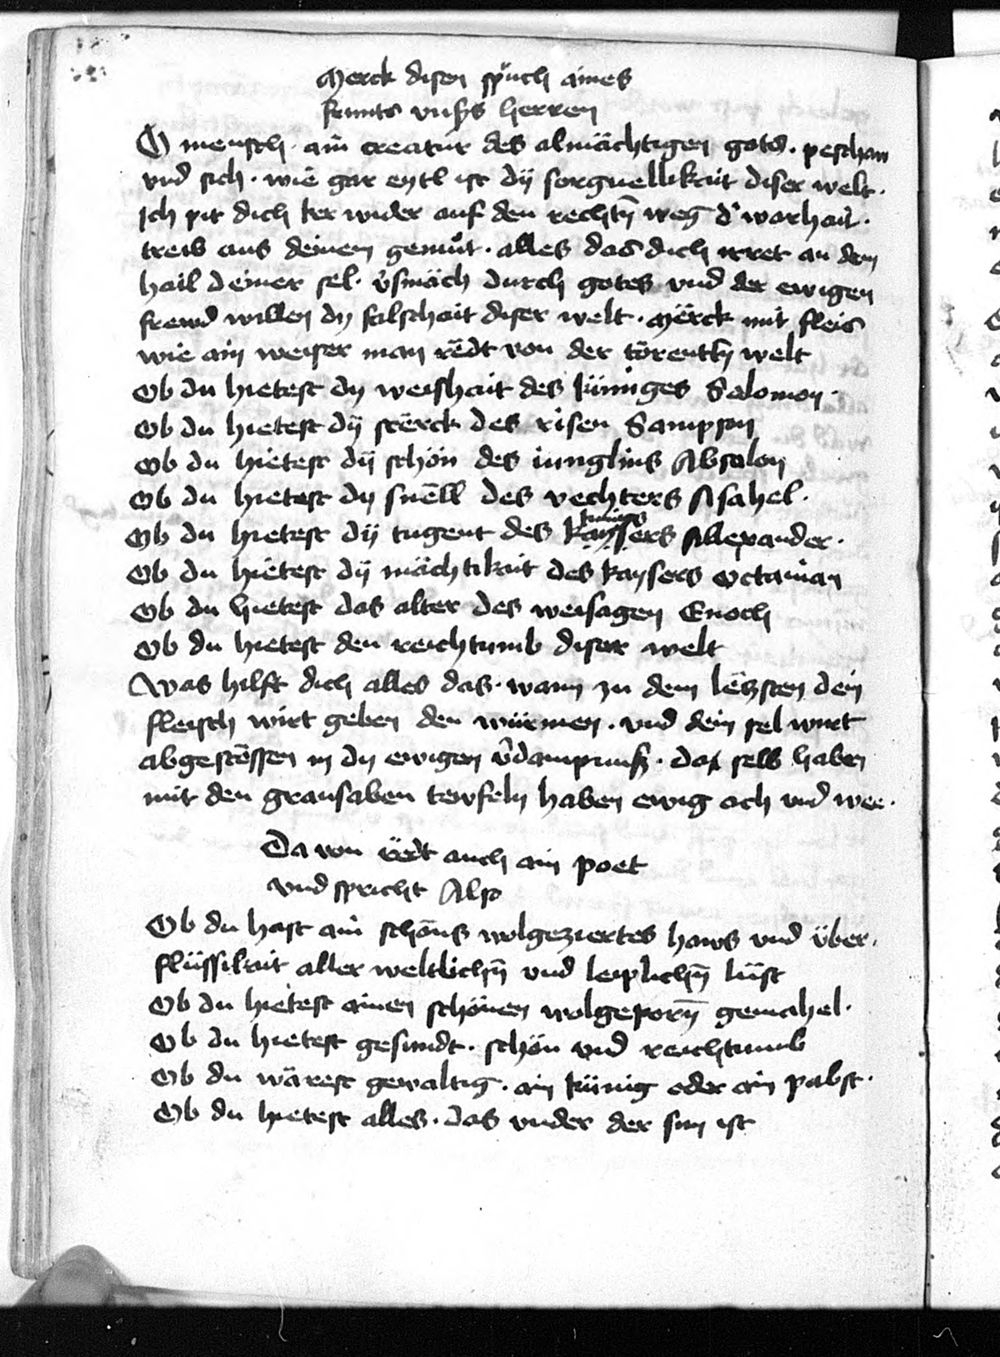 Merck disen spruch aines
frunts unsers herren
O mensch · ain creatur des almächtigen gots · peschaw
und sich · wie gar eytl ist dÿ sorguellikait diser welt ·
Ich pit dich ker wider auf den rechtn̄ weg d' warhait ·
treib aus deinem gemüt · alles das dich irret an dem
hail deiner sel · v'smäch durch gotes und der ewigen
frewd willen dy falschait diser welt · Merck mit fleis
wie ain weiser man redt von der törentn̄ welt
Ob du hietest dy weishait des küniges Salomon ·
Ob du hietest dÿ sterck des risen Sampson
Ob du hietest dÿ schön des iunglins Absolon
Ob du hietest dy snell des vechters Asahel ·
Ob du hietest dÿ tugent des kaysers künigs Allexander ·
Ob du hietest dÿ mächtikait des kaysers octavian
Ob du hietest das alter des weisagen Enoch
Ob du hietest den reichtumb diser welt
Was hilft dich alles das · wann zu dem letzsten dein
fleisch wirt geben den würmen · und dein sel wirt
abgestossen in dy ewigen v'dampnuss · da selb haben
mit den grausaben tewfeln haben ewig ach und wee ·
Da von redt auch ain poet
und spricht Also
Ob du hast ain schöns wolgeziertes haws und über ·
flüssikait aller weltlichn̄ und leiplichn̄ lüst
Ob du hietest ainen schönen wolgeporn̄ gemahel ·
Ob du hietest gesundt · schön und reichtumb
Ob du wärest gewaltig · ain künig oder ain pabst ·
Ob du hietest alles · das under der sun ist